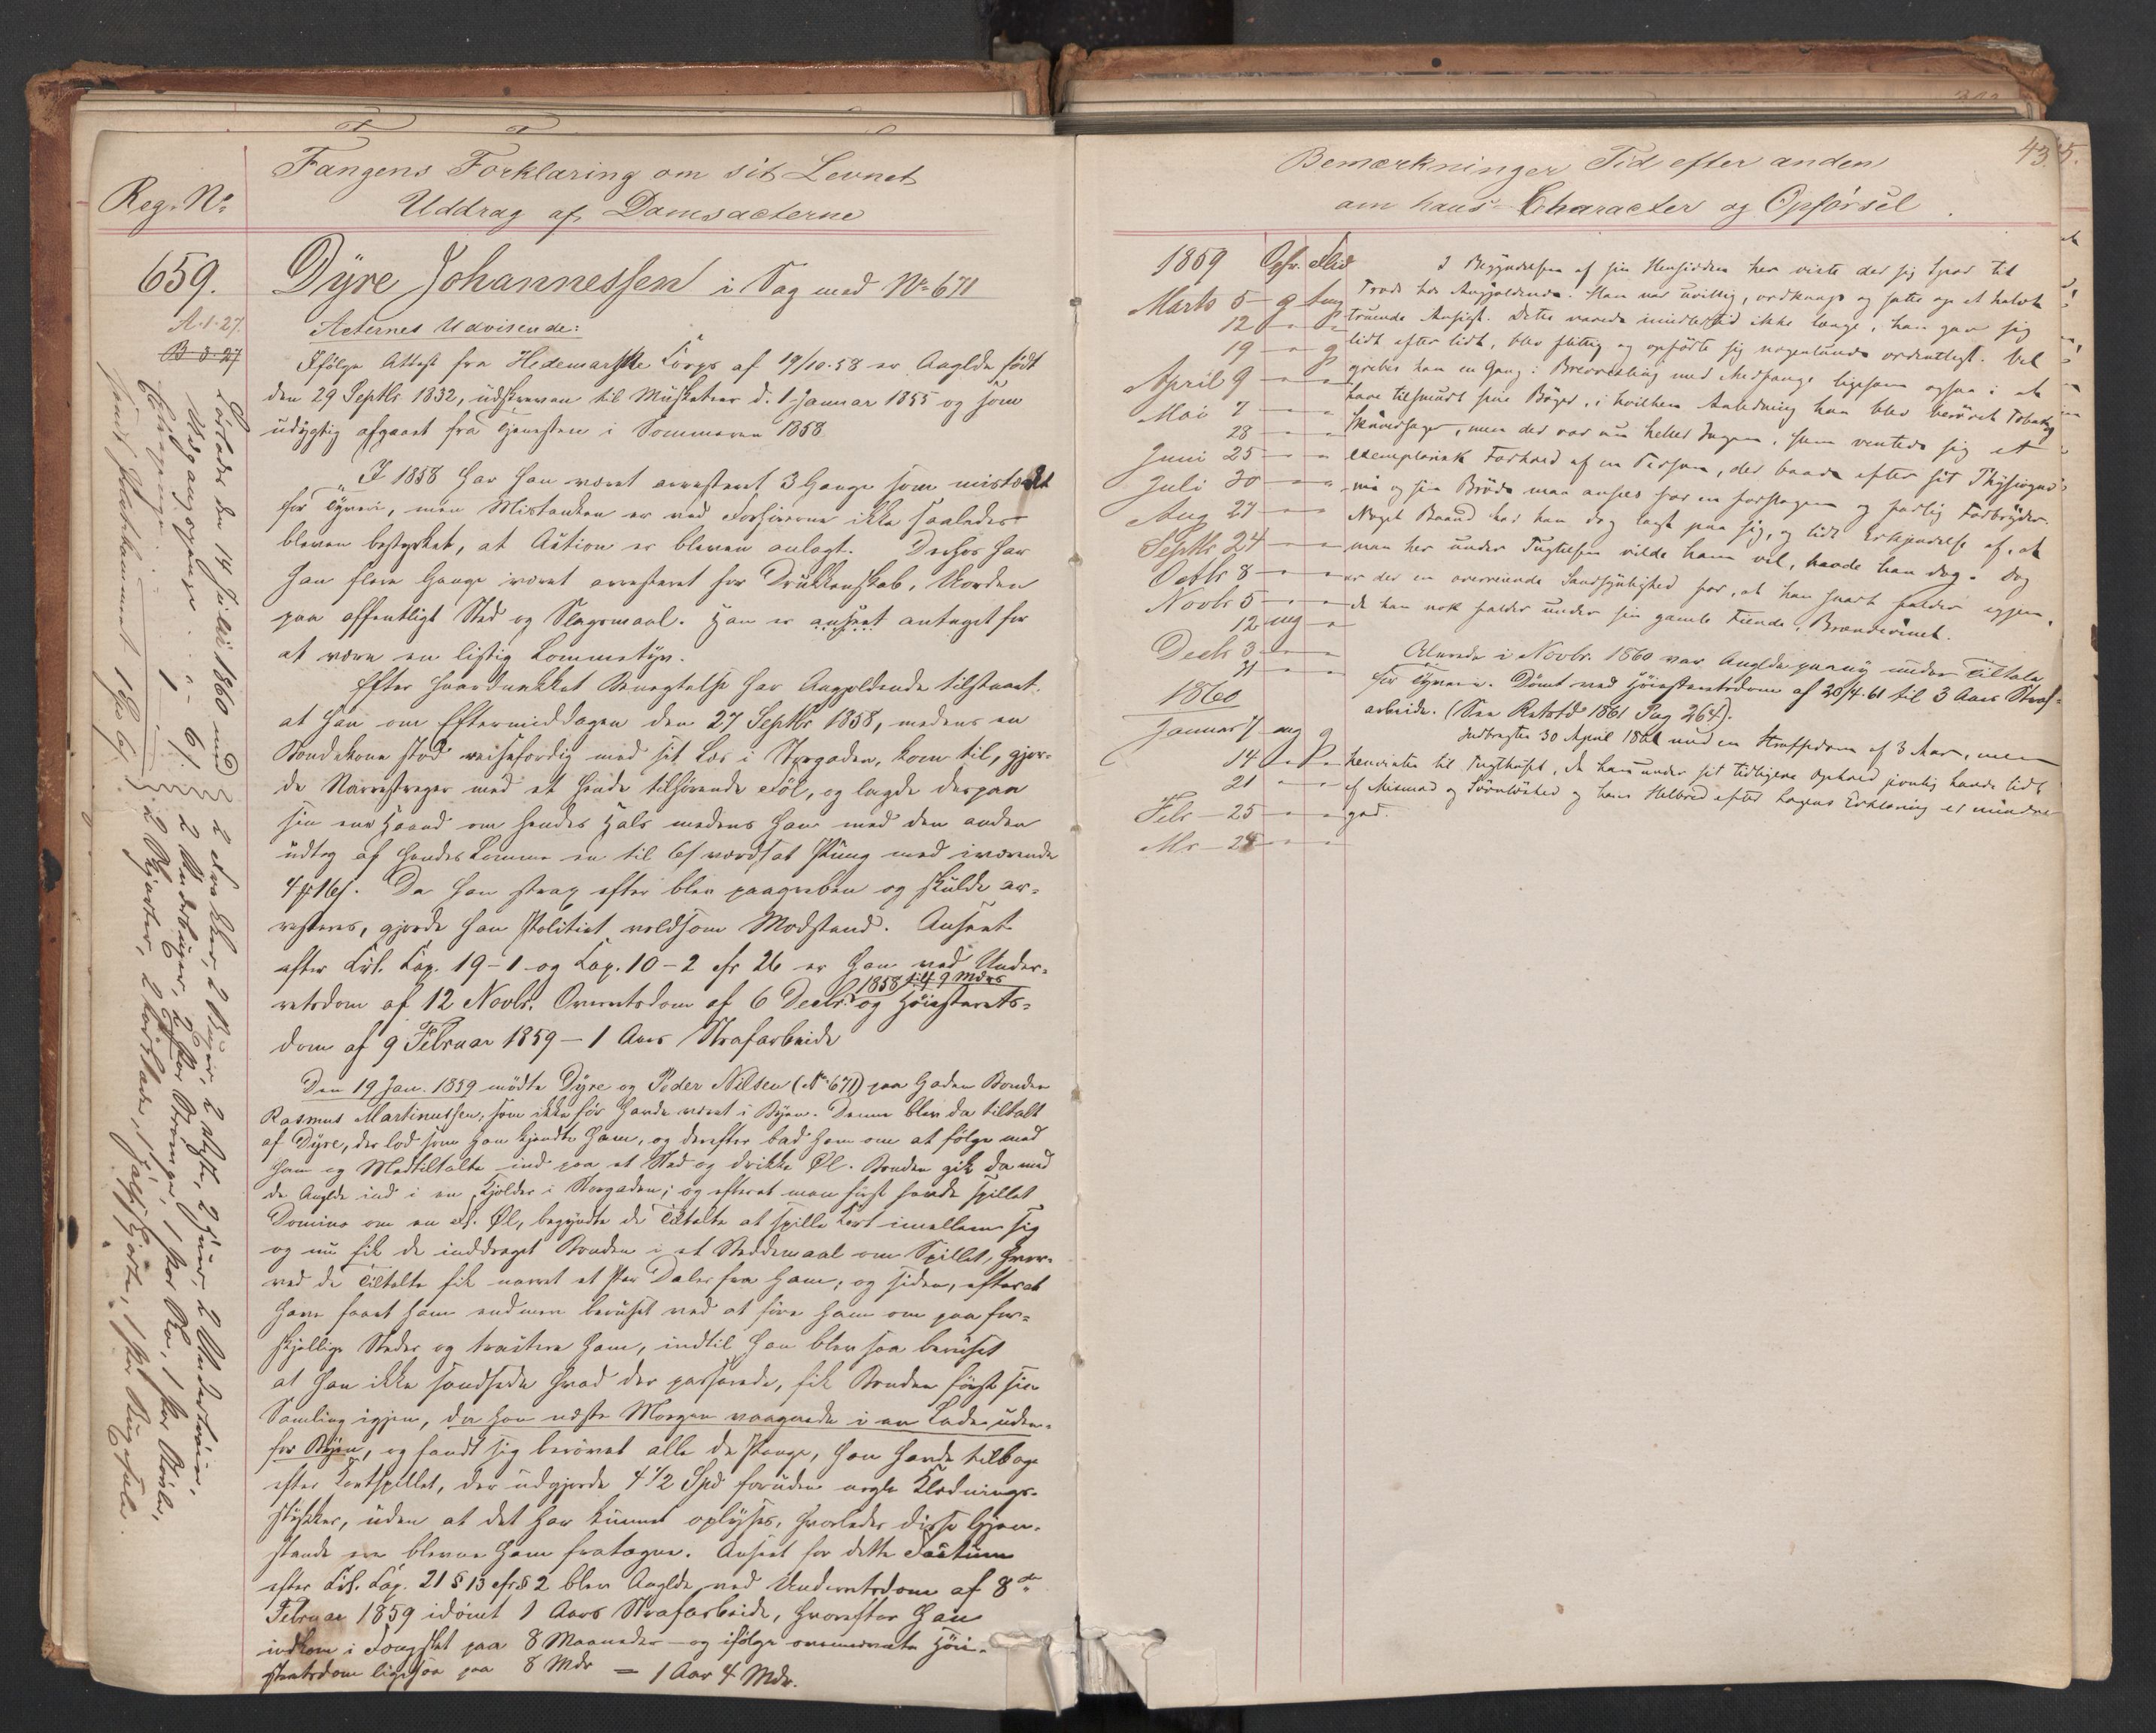 Fangens Forklaring om sit Levnet
Reg. No
Uddrag af Domsacterne
659.
A-1-27.
B-3-27
Dÿre Johannessen i Sag med No 671
Acternes Udvisende:
Ifølge Attest fra Hedemarkske Corps af 19/10.58 er Anglde født
den 29 Septbr 1832, udskreven til Musketeer d. 1 Januar 1855 og som
udygtig afgaaet fra Tjenesten i Sommeren 1858
I 1858 har han været arresteret 3 Gange som mistænkt
for Tyveri, men Mistanken er ved Forhørerne ikke saaledes
bleven bestyrket, at Action er bleven anlagt. Derhos har
han flere Gange været arresteret for Drukkenskab, Uorden
paa offentligt Sted og Slagsmaal. Han er anseet antaget for
at være en listig Lommetyv.
Efter haardnakket Benegtelse har Angjeldende tilstaaet.
at han om Eftermiddagen den 27 Septbr 1858, medens en
Bondekone stod reisefærdig med sit Læs i Storgaden, kom til, gjor-
de Narrestreger med et hende tilhørende Føl, og lagde derpaa
sin ene Haand om hendes Hals medens han med den anden
udtog af hendes Lomme en til 6 s værdsat Pung med iværende
4 16 s. Da han strax efter blev paagreben og skulde ar-
resteres, gjorde han Politiet voldsom Modstand. Anseet
efter Crl. Cap. 19-1 og Cap. 10-2 cfr 26 er han ved Under-
1858 till 9 Mdrs
retsdom af 12 Novbr. Overretsdom af 6 Decbr. og Høiesterets-
dom af 9 Februar 1859 - 1 Aars Strafarbeide
Den 19 Jan. 1859 mødte Dÿre og Peder Nilsen (No 671) paa Gaden Bonden
Rasmus Martinussen, som ikke før havde været i Byen. Denne blev da tiltalt
af Dÿre, der lod som han kjendte ham, og derefter bad ham om at følge med
ham og Medtiltalte ind paa et Sted og drikke Øl. Bonden gik da med
de Anglde ind i en Kjelder i Storgaden; og efterat man først havde spillet
Domino om en Fl. Øl, begyndte de Tiltalte at spille Kort imellem sig
og nu fik de inddraget Bonden i et Veddemaal om Spillet, hvor-
ved de Tiltalte fik narret et Par Daler fra ham; og siden, efterat
have faaet ham endmere beruset ved at føre ham om paa for-
skjellige Steder og tractere ham, indtil han blev saa beruset
at han ikke sandsede hvad der passerede, fik Bonden først sin
Samling igjen, da han næste Morgen vaagnede i en Lade uden-
for Byen, og fandt sig berøvet alle de Penge, han havde tilbage
efter Kortspillet, der udgjorde 4 1/2 Spd foruden nogle Klædnings-
stykker, uden at det har kunnet oplyses, hvorledes disse Gjen-
stande ere blevne ham fratagne. Anseet for dette Factum
efter Crl. Cap. 21 § 13 cfr § 2 blev Anglde ved Underretsdom af 8de
Februar 1859 idømt 1 Aars Strafarbeide, hvorefter han
indkom i Fængslet paa 8 Maaneder - og ifølge ovennævnte Høie-
steretsdom ligesaa paa 8 Mdr = 1 Aar 4 Mdr.
Løslades den 14 Juli 1860 med 2 Frakker, 2 Buxer, 2 Veste, 2 Huer, 2 Undertrøier,
Udgangspenge 1 - 6 s. 2 Underbuxer, 2 Par Strømper, 1 Par Sko, 1 Par Støvler,
2 Skjorter, 2 Tørklæder, 1 Halsskjorte, 1 Par
43
5.
Bemærkninger Tid efter anden
om hans Character og Opførsel
1859 Opf. Flid
Marts 5 - g
12
19
April 9
Mai 7
28
Juni 25
Juli 30
Aug 27
Septbr 24
Octbr 8
Novbr 5
12 mg
Decb 3
31
1860
Januar 7 mg g
14
21
Febr - 25
Mr - 24
I Begyndelsen af sin Hensidden her viste der sig Spor til
Trods hos Angjældende. Han var uvillig, ordknap og satte op et halvt
truende Ansigt. Dette varede imidlertid ikke længe, han gav sig
lidt efter lidt, blev flittig og opførte sig nogenlunde ordentligt. Vel
grebes han en Gang i Brevvexling med Medfange ligesom ogsaa i at
have tilsmudset sine Bøger, i hvilken Anledning han blev berøvet Tobak og
Skrivesager, men der var nu heller Ingen, som ventede sig et
exemplarisk Forhold af en Person, der baade efter sit Physiogno-
mi og sin Brøde maa ansees for en forslagen og farlig Forbryder.
Noget Baand har han dog lagt paa sig, og lidt Erkjendelse af, at
man her under Tugtelsen vilde ham vel, havde han dog. Dog
er der en overveiende Sandsynlighed for, at han snart falder igjen,
da han nok falder under sin gamle Fiende, Brændevinet.
Allerede i Novbr. 1860 var Anglde paany under Tiltale
for Tyveri. Dømt ved Høiesteretsdom af 20/4.61 til 3 Aars Straf-
arbeide. (See Retstd 1861 Pag 264).
Indbragtes 30 April 1861 med en Straffedom af 3 Aar, men
henvistes til Tugthuset, da han under sit tidligere Ophold jevnlig havde lidt
af Mismod og Søvnløshed og hans Helbred efter Lægens Erklæring er mindre
god.